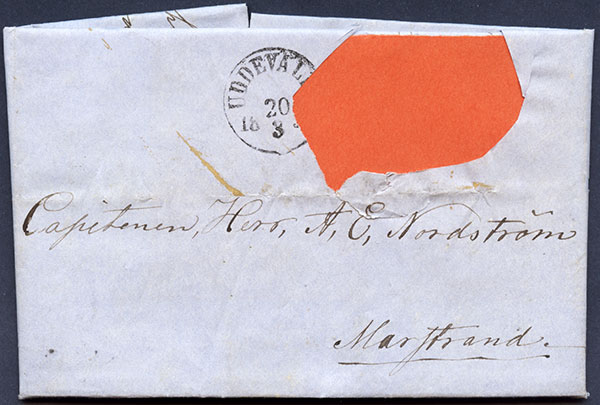 UDDEVALL
20
18 3
Capitenen, Herr, A, E, Nordström
Marstrand.